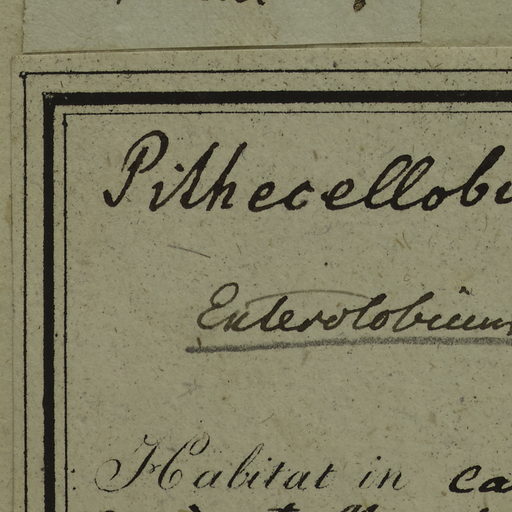 Pithecellobi
Enterolobium
Habitat in ca